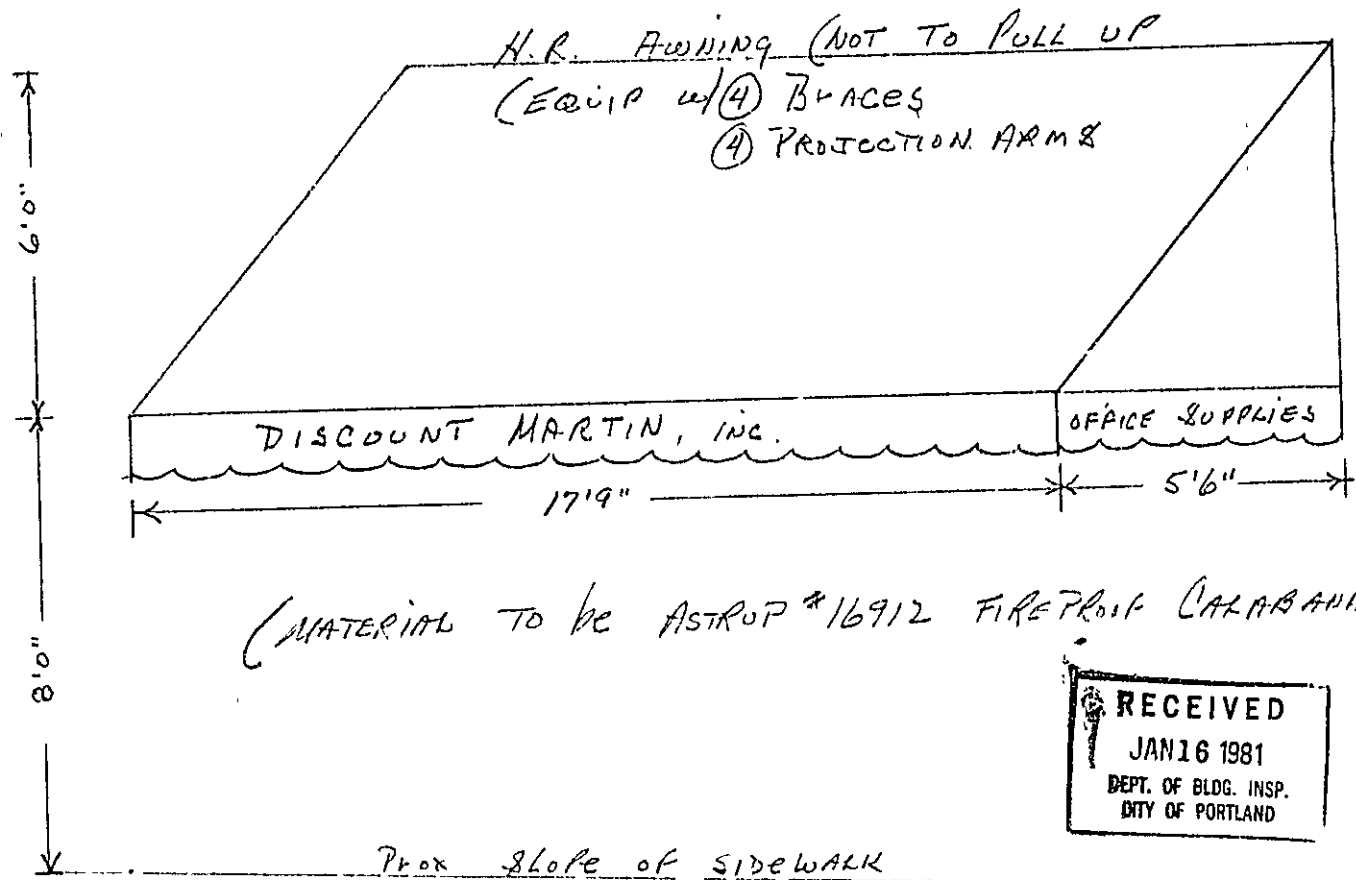 H.R. AWNING (NOT TO PULL UP
(EQUIP w/ ④ BrACES
④ PROJECTION ARMS
6'0"
DISCOUNT MARTIN, inc.
OFFICE SUPPLIES
17'9"
5'6"
8'0"
(MATERIAL TO be ASTRUP #16912 FIREPROOF
RECEIVED
JAN 16 1981
DEPT. OF BLDG. INSP.
CITY OF PORTLAND
Prox SLOPE OF SIDEWALK